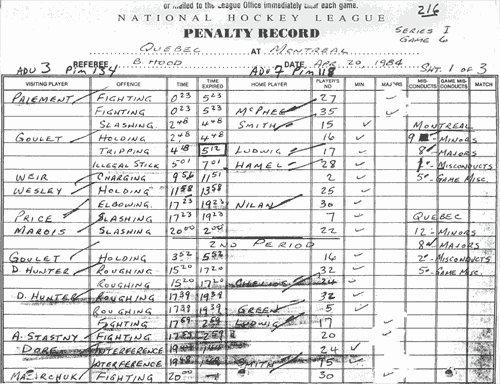 or mailed to the League Office immediately after each game.
216
NATIONAL HOCKEY LEAGUE
PENALTY RECORD
SERIES I
GAME 6
QUEBEC AT MONTREAL
ADV 3 PIM 134 ADV 7 PIM 118
REFEREE B. HOOD DATE APR. 20, 1984 SHT. 1 OF 3
VISITING PLAYER OFFENCE TIME TIME EXPIRED HOME PLAYER PLAYER'S NO MIN. MAJORS MIS-CONDUCTS GAME MIS-CONDUCTS MATCH
PAIEMENT FIGHTING 0 23 5 23 27
FIGHTING 0 23 5 23 MCPHEE 35
SLASHING 2 48 4 48 SMITH 15 MONTREAL
GOULET HOLDING 2 48 4 48 16 9 MINORS
TRIPPING 4 48 5 12 LUDWIG 17 8 MAJORS
ILLEGAL STICK 5 01 7 01 HAMEL 28 MISCONDUCTS
WEIR CHARGING 9 56 11 51 2 5 - GAME MISC.
WESLEY HOLDING 11 58 13 58 25
ELBOWING 17 23 19 23 NILAN 30
PRICE SLASHING 17 23 19 23 7 QUEBEC
MAROIS SLASHING 20 00 2 00 22 12 - MINORS
2ND PERIOD 8 MAJORS
GOULET HOLDING 3 52 5 52 16 2 - MISCONDUCTS
D. HUNTER ROUGHING 15 20 17 20 32 5 - GAME MISC.
ROUGHING 15 20 17 20 CHELIOS 24
D. HUNTER ROUGHING 17 39 19 39 32
ROUGHING 17 39 19 39 GREEN 5
FIGHTING 17 59 2 59 LUDWIG 17
A. STASTNY FIGHTING 17 59 2 59 20
DORE INTERFERENCE 24
INTERFERENCE SMITH 15
MAZIRCHUK FIGHTING 20 00 30